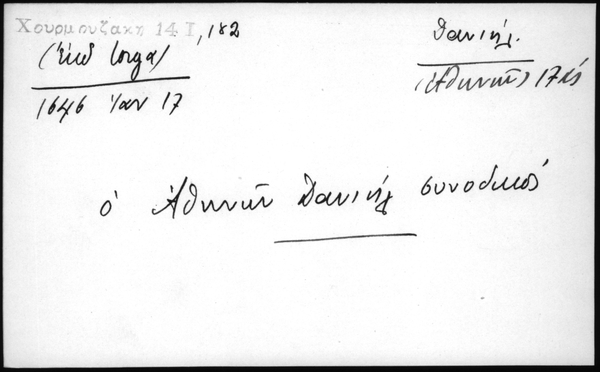 Χουρμουζακη 14 I, 182
(ἔκδ Iorga)
1646 Ἰαν 17
Δανιήλ.
(Ἀθηνῶν) 17ος
ὁ Ἀθηνῶν Δανιήλ συνοδικός